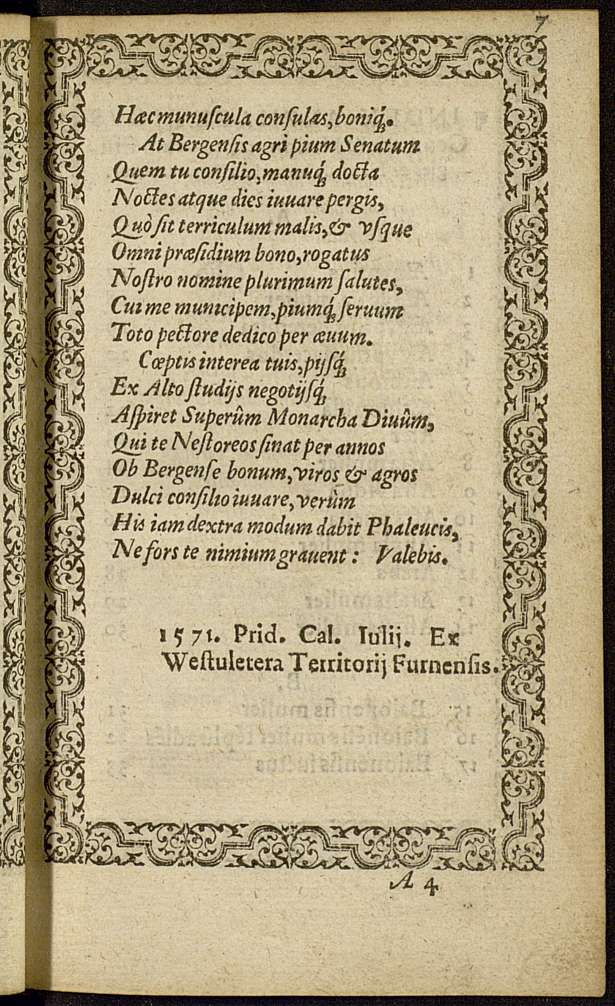 7
Hæc munuſcula conſulas, boniq́;.
At Bergenſis agri pium Senatum
Quem tu conſilio, manuq́; docta
Noctes atque dies iuuare pergis,
Quò ſit terriculum malis, & vſque
Omni præſidium bono, rogatus
Noſtro nomine plurimum ſalutes,
Cui me municipem, piumq́; ſeruum
Toto pectore dedico per æuum.
Cœptis interea tuis, pijſq́;
Ex Alto ſtudijs negotijſq́;
Aſpiret Superûm Monarcha Diuûm,
Qui te Neſtoreos ſinat per annos
Ob Bergenſe bonum, viros & agros
Dulci conſilio iuuare, verùm
His iam dextra modum dabit Phaleucis,
Ne fors te nimium grauent: Valebis.
1571. Prid. Cal. Iulij. Ex
Weſtuletera Territorij Furnenſis.
A 4